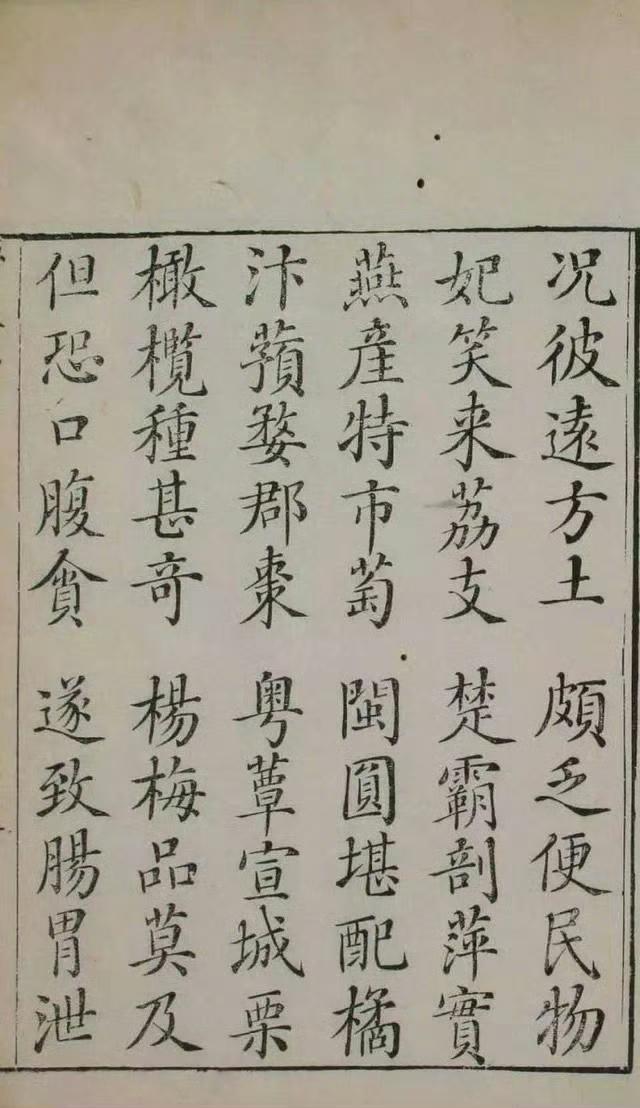 况彼遠方土 頗乏便民物
妃笑来荔支 楚霸剖萍實
燕產特市萄 閩圓堪配橘
汴蘋婺郡棗 粤蕈宣城栗
橄欖種甚竒 楊梅品莫及
但恐口腹貪 遂致腸胃泄